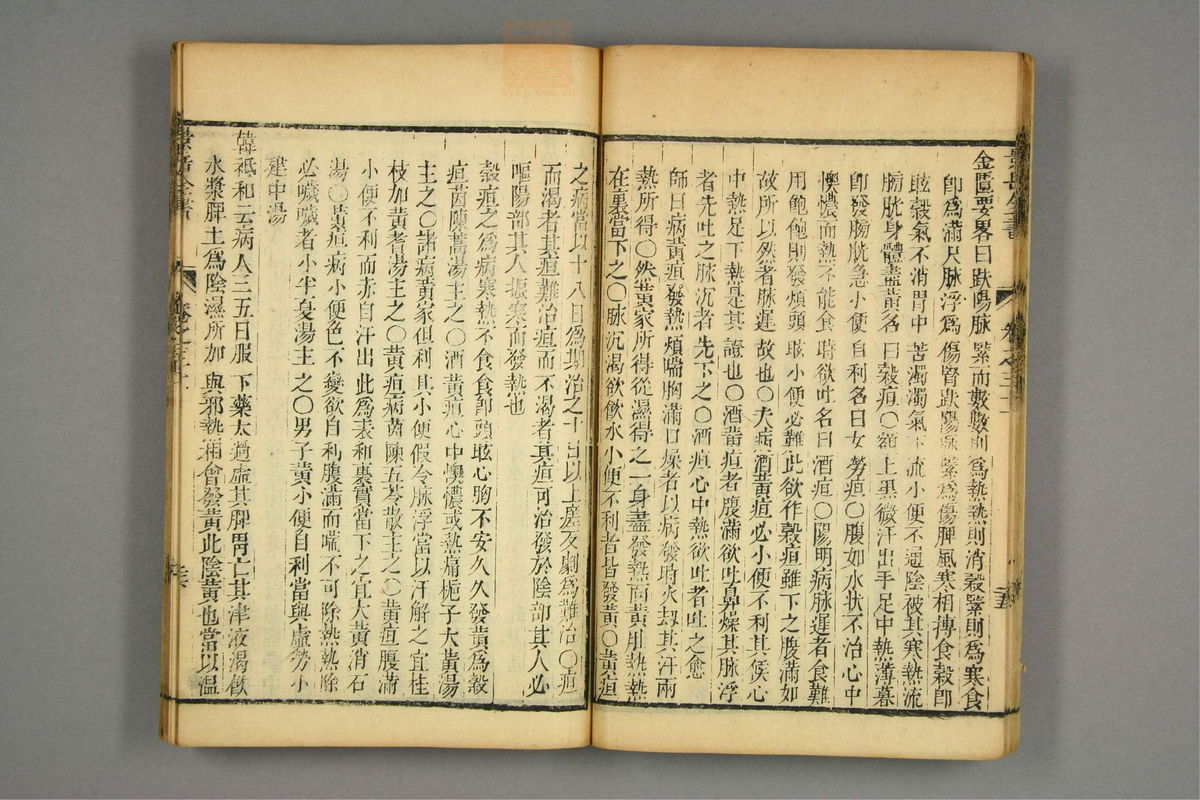 金匱要畧曰趺陽脉緊而數數則爲熱熱則消榖緊則爲寒食
卽爲滿尺脉浮爲傷腎趺陽脉緊爲傷脾風寒相摶食榖卽
眩榖氣不消胃中苦濁濁氣下流小便不通陰被其寒熱流
膀胱身體盡黄名曰榖疸〇額上黒微汗出手足中熱薄暮
卽發膀胱急小便自利名曰女勞疸〇腹如水状不治心中
懊憹而熱不能食時欲吐名曰酒疸〇陽明病脉遲者食難
用飽飽則發煩頭眩小便必難此欲作榖疸雖下之腹滿如
故所以然者脉遲故也〇夫病酒黄疸必小便不利其候心
中熱足下熱是其證也〇酒黄疸者腹滿欲吐鼻燥其脉浮
者先吐之脉沉者先下之〇酒疸心中熱欲吐者吐之愈
師曰病黄疸發熱煩喘胸滿口燥者以病發時火刼其汗兩
熱所得〇然黄家所得從濕得之一身盡發熱而黄肚熱熱
在裏當下之〇脉沉渴欲飲水小便不利者皆發黄〇黄疸
之病當以十八日爲期治之十日以上瘥反劇爲難治〇疸
而渴者其疸難治疸而不渴者其疸可治發於陰部其人必
嘔陽部其人振寒而發熱也
榖疸之爲病寒熱不食食卽頭眩心胸不安久久發黄爲榖
疸茵陳蒿湯主之〇酒黄疸心中懊憹或熱痛梔子大黄湯
主之〇諸病黄家但利其小便假令脉浮當以汗解之宜桂
枝加黄耆湯主之〇黄疸病茵陳五苓散主之〇黄疸腹滿
小便不利而赤自汗出此爲表和裏實當下之宜大黄消石
湯〇黄疸病小便色不變欲自利腹滿而喘不可除熱熱除
必噦噦者小半夏湯主之〇男子黄小便自利當與虛勞小
建中湯
韓祗和云病人三五日服下藥太過虛其脾胃亡其津液渴飲
水漿脾土爲陰濕所加與邪熱相會發黄此陰黄也當以温
景岳全書
卷之三十一